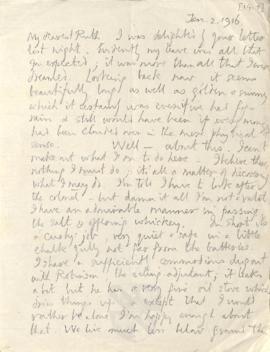 Jan. 2. 1916
My dearest Ruth I was delighted by your letter
last night. Evidently my leave was all that
you expected; it was more than all that I ever
dreamed. Looking back now it seems
beautifully long as well as golden & sunny,
which it certainly was even if we had fog &
rain & still would have been if everything
had been cloudier even in the most physical
sense.
Well — about this. I can't
make out what I'm to do here. I believe there's
nothing I must do; it's all a matter of discovering
what I may do. I'm told I have to look after
the colonel — but damn it all I'm not a valet.
I have an admirable manner in passing
the salt & offering whiskey. In short it's
a cushy job very quiet & safe in a little
chalk far from the batteries.
I have a sufficiently commodious dugout
with the acting adjutant; it leaks
a bit but he has a very fine oil stove which
dries things up & except that I would
rather be alone I'm happy enough about
that. We live much less below ground than